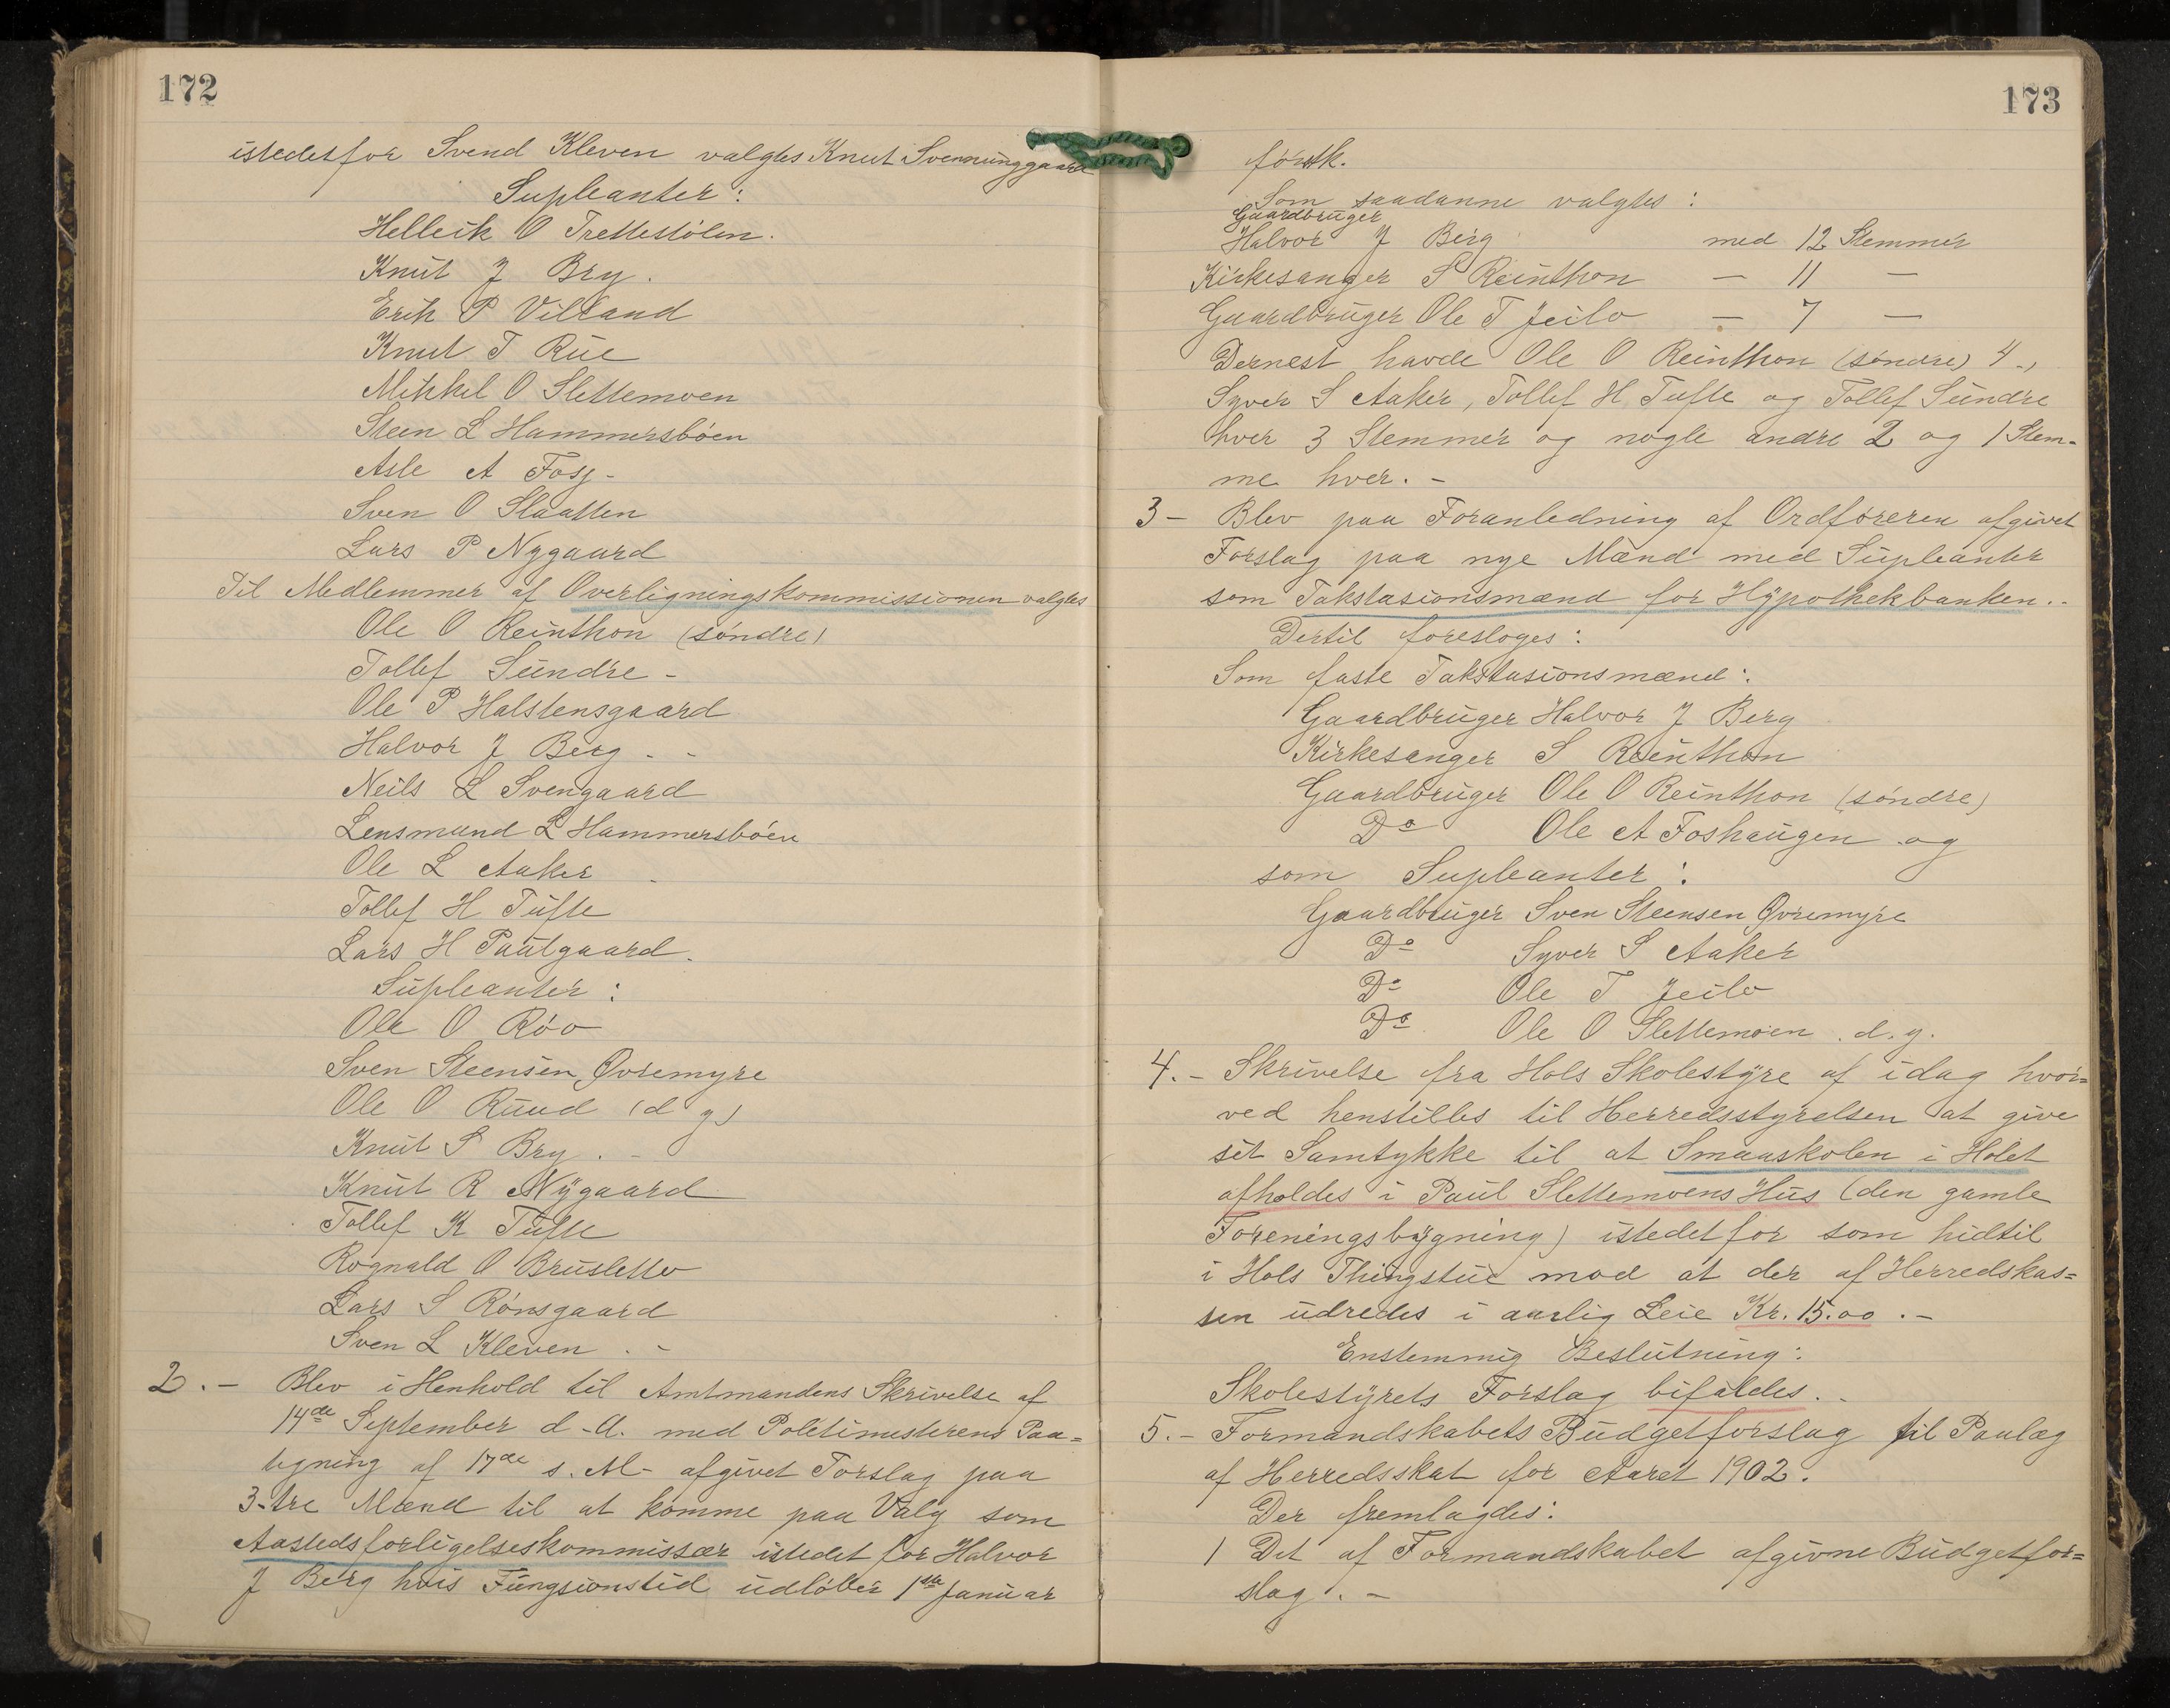 172
istedetfor Svend Kleven valgtes Knut Svennunggaard
Supleanter:
Helleik O Trettestölen.
Knut J Bry.
Erik P Villand
Knut T Rue
Mikkel O Slettemoen
Steen L Hammersböen
Asle A Fosz-
Sven O Slaatten
Lars P Nygaard
Til Medlemmer af Overligningskommissionen valgtes
Ole O Reinthon (söndre)
Tollef Sundre -
Ole P Halstensgaard
Halvor J Berg - -
Neils L Svengaard
Lensmand L Hammersböen
Ole L Aaker -
Tollef H Tufte
Lars H Paulgaard.
Supleanter:
Ole O Röo
Sven Steensen Øvremyre
Ole O Ruud (d y)
Knut S Bry. -
Knut R Nygaard
Tollef K Tufte
Rognald O Brusletto
Lars S Rönsgaard
Sven L Kleven . -
2. - Blev i Henhold til Amtmandens Skrivelse af
14de September d.A. med Politimesterens Paa=
tegning af 17de s. M- afgivet Forslag paa
3-tre Mænd til at komme paa Valg som
Aastedsforligelseskommissær istedet for Halvor
J Berg hvis Fungsionstid udlöber 1ste Januar
173
förstk.
Som saadanne valgtes:
Gaardbruger
Halvor J Berg med 12 Stemmer
Kirkesanger S Reinthon — 11 —
Gaardbruger Ole T Jeilo — 7 —
Dernest havde Ole O Reinthon (söndre) 4.,
Syver S Aaker, Tollef H Tufte og Tollef Sundre
hver 3 Stemmer og nogle andre 2 og 1 Stem-
me hver. -
3 - Blev paa Foranledning af Ordföreren afgivet
Forslag paa nye Mænd med Supleanter
som Takstasionsmænd for Hypothekbanken..
Dertil foresloges:
Som faste Takstasionsmænd:
Gaardbruger Halvor J Berg
Kirkesanger S Reinthon
Gaardbruger Ole O Reinthon (söndre)
Do Ole A Foshaugen og
som Supleanter:
Gaardbruger Sven Steensen Øvremyre
Do Syver S Aaker
Do Ole T Jeilo
Do Ole O Slettemoen . d. y.
4. - Skrivelse fra Hols Skolestyre af idag hvor=
ved henstilles til Herredsstyrelsen at give
sit Samtykke til at Smaaskolen i Holet
afholdes i Paul Slettemoens Hus (den gamle
Foreningsbygning) istedetfor som hidtil
i Hols Thingstue mod at der af Herredskas=
sen udredes i aarlig Leie Kr. 15.00 . -
Enstemmig Beslutning:
Skolestyrets Forslag bifaldes. -
5. - Formandskabets Budgetforslag til Paalæg
af Herredsskat for Aaret 1902.
Der fremlagdes:
1 Det af Formandskabet afgivne Budgetfor=
slag. -